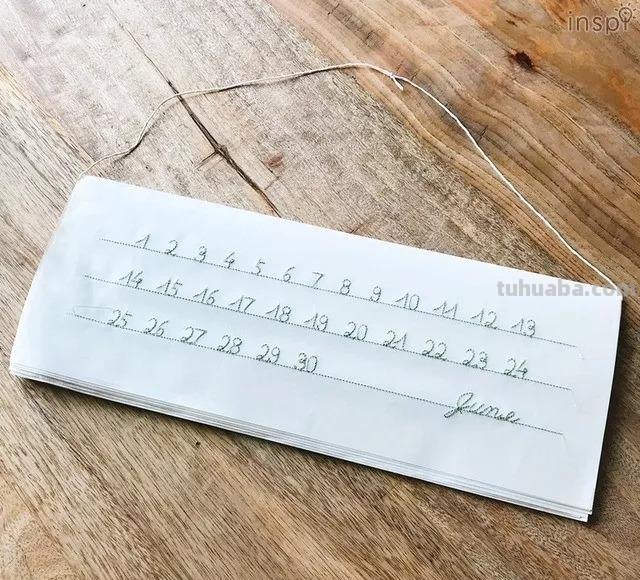 inspi
1 2 3 4 5 6 7 8 9 10 11 12 13
tuhuaba.com
14 15 16 17 18 19 20 21 22 23 24
25 26 27 28 29 30
June